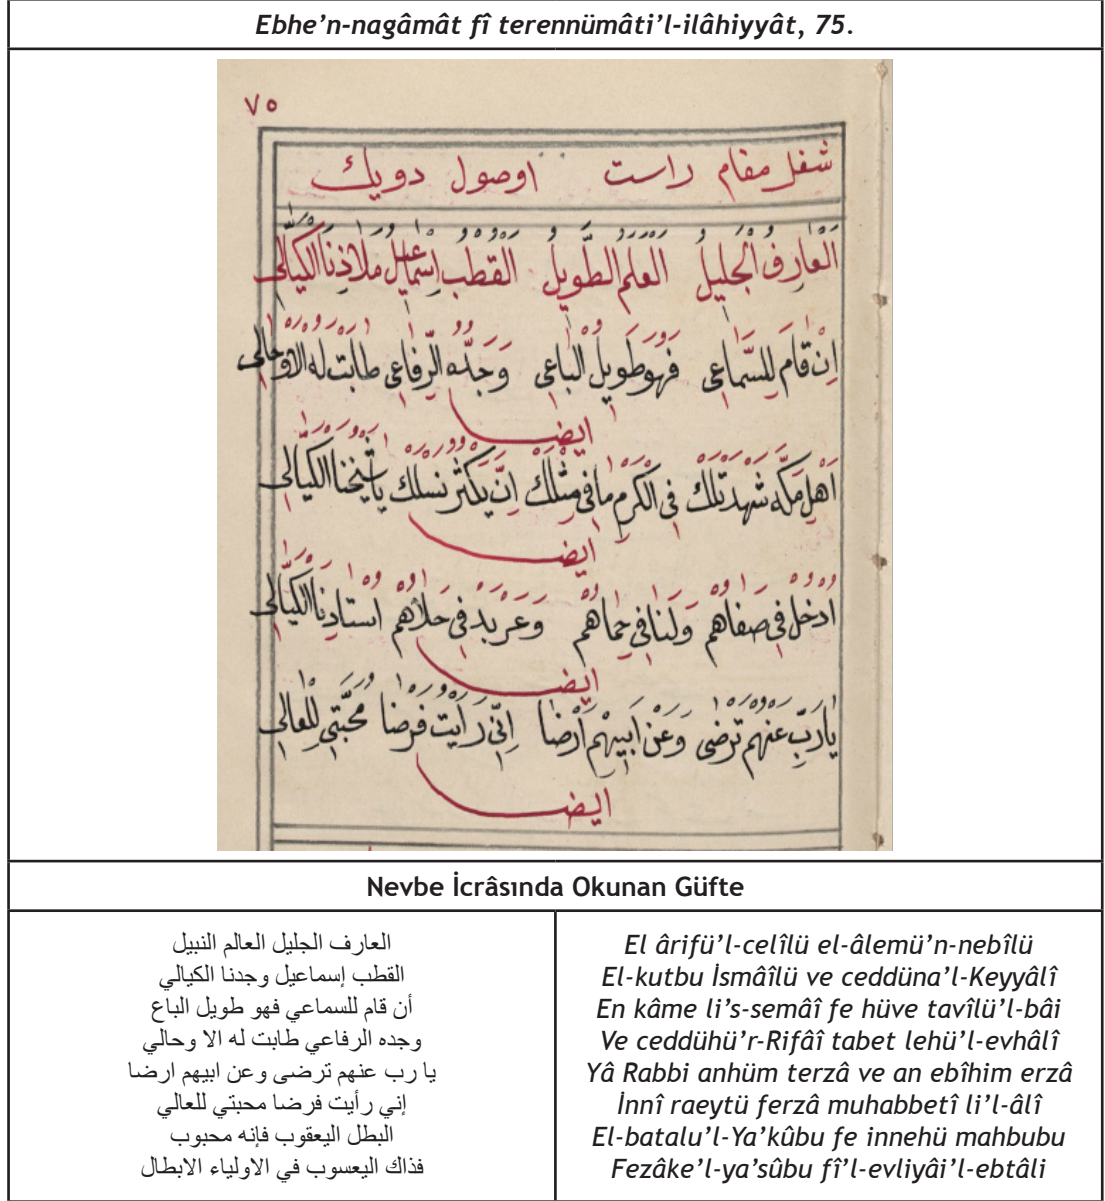 Ebhe’n-nagâmât fî terennümâti’l-ilâhiyyât, 75.
٧٥
شغل مقام راست اوصول دويك
اَلْعَارِفُ الْجَلِيلُ اَلْعَلَمُ الطَّوِيلُ اَلْقُطْبُ اِسْمَاعِيلُ مَلَاذِنَا الْكَيَّالِى
اِنْ قَامَ لِلسَّمَاعِى فَهُوَ طَوِيلُ الْبَاعِى وَجَدُّه الرِّفَاعِى طَابَتْ لَه الاوحالى
ايضا
اَهْلِ مَكَّه شَهِدَتْلَكْ فِى الْكَرَمِ مَا فِى مِثْلَكْ اِنَّ يَكْثَرْ نَسْلَكْ يَا شَيْخَنَا الْكَيَّالِى
ايضا
اُدْخُلْ فِى صَفَاهُمْ وَلَنَا فِى حِمَاهُمْ وَعَرْبِدْ فِى حَلَاهُمْ اُسْتَادِنَا الْكَيَّالِى
ايضا
يَارَبِّ عَنْهُمْ تَرْضَى وَعَنْ اَبِيهِمْ اَرْضَا اِنِّى رَاَيْتُ فَرْضَا مَحَبَّتِى لِلْعَالِى
ايضا
Nevbe İcrâsında Okunan Güfte
العارف الجليل العالم النبيل
القطب إسماعيل وجدنا الكيالي
أن قام للسماعي فهو طويل الباع
وجده الرفاعي طابت له الا وحالي
يا رب عنهم ترضى وعن ابيهم ارضا
إني رأيت فرضا محبتي للعالي
البطل اليعقوب فإنه محبوب
فذاك اليعسوب في الاولياء الابطال
El ârifü’l-celîlü el-âlemü’n-nebîlü
El-kutbu İsmâîlü ve ceddüna’l-Keyyâlî
En kâme li’s-semâî fe hüve tavîlü’l-bâi
Ve ceddühü’r-Rifâî tabet lehü’l-evhâlî
Yâ Rabbi anhüm terzâ ve an ebîhim erzâ
İnnî raeytü ferzâ muhabbetî li’l-âlî
El-batalu’l-Ya’kûbu fe innehü mahbubu
Fezâke’l-ya’sûbu fî’l-evliyâi’l-ebtâli